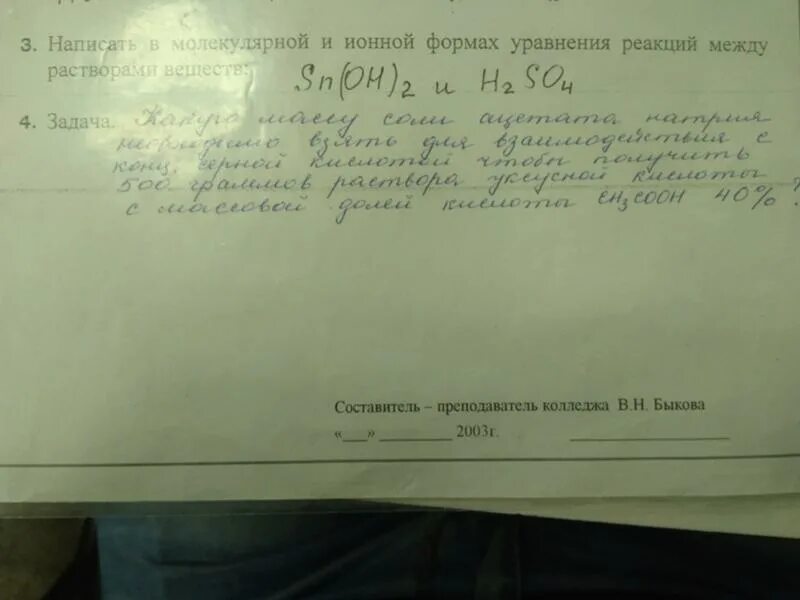 3. Написать в молекулярной и ионной формах уравнения реакций между
растворами веществ:
Sn(OH)2 и H2SO4
4. Задача. Какую массу соли ацетата натрия
необходимо взять для взаимодействия с
конц. серной кислотой чтобы получить
500 граммов раствора уксусной кислоты
с массовой долей кислоты CH3COOH 40%?
Составитель – преподаватель колледжа В.Н. Быкова
«___» ________ 2003г. ________________